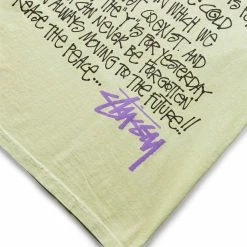 COLD
IN WHICH WE
COEXIST. AND
THE Y IS FOR YESTERDAY
CAN NEVER BE FORGOTTEN
ALWAYS MOVING TO THE FUTURE!!
THE PEACE...
STÜSSY